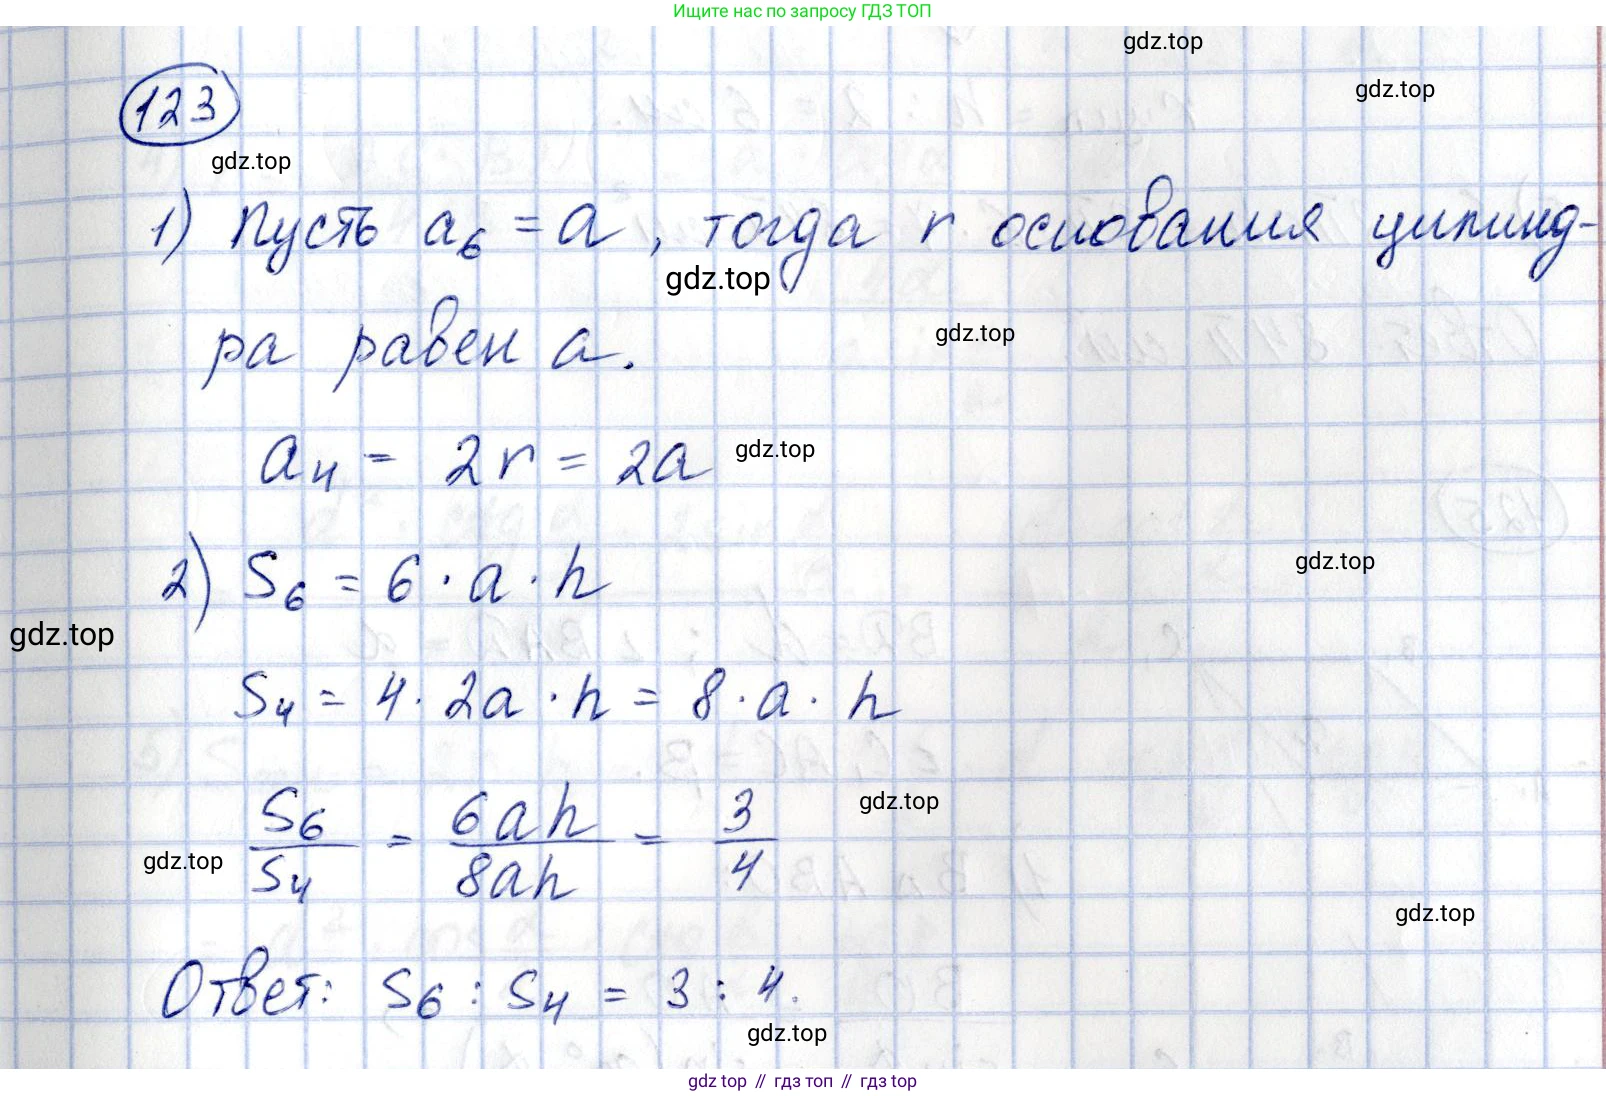 Ищите нас по запросу ГДЗ ТОП
gdz.top
gdz.top
123
gdz.top
1) Пусть a₆ = a, тогда r основания цилинд-
gdz.top
ра равен a.
gdz.top
a₄ = 2r = 2a
gdz.top
2) S₆ = 6 · a · h
gdz.top
gdz.top
S₄ = 4 · 2a · h = 8 · a · h
S₆/S₄ = 6ah/8ah = 3/4
gdz.top
gdz.top
gdz.top
Ответ: S₆ : S₄ = 3 : 4.
gdz.top
gdz.top // гдз топ // gdz top